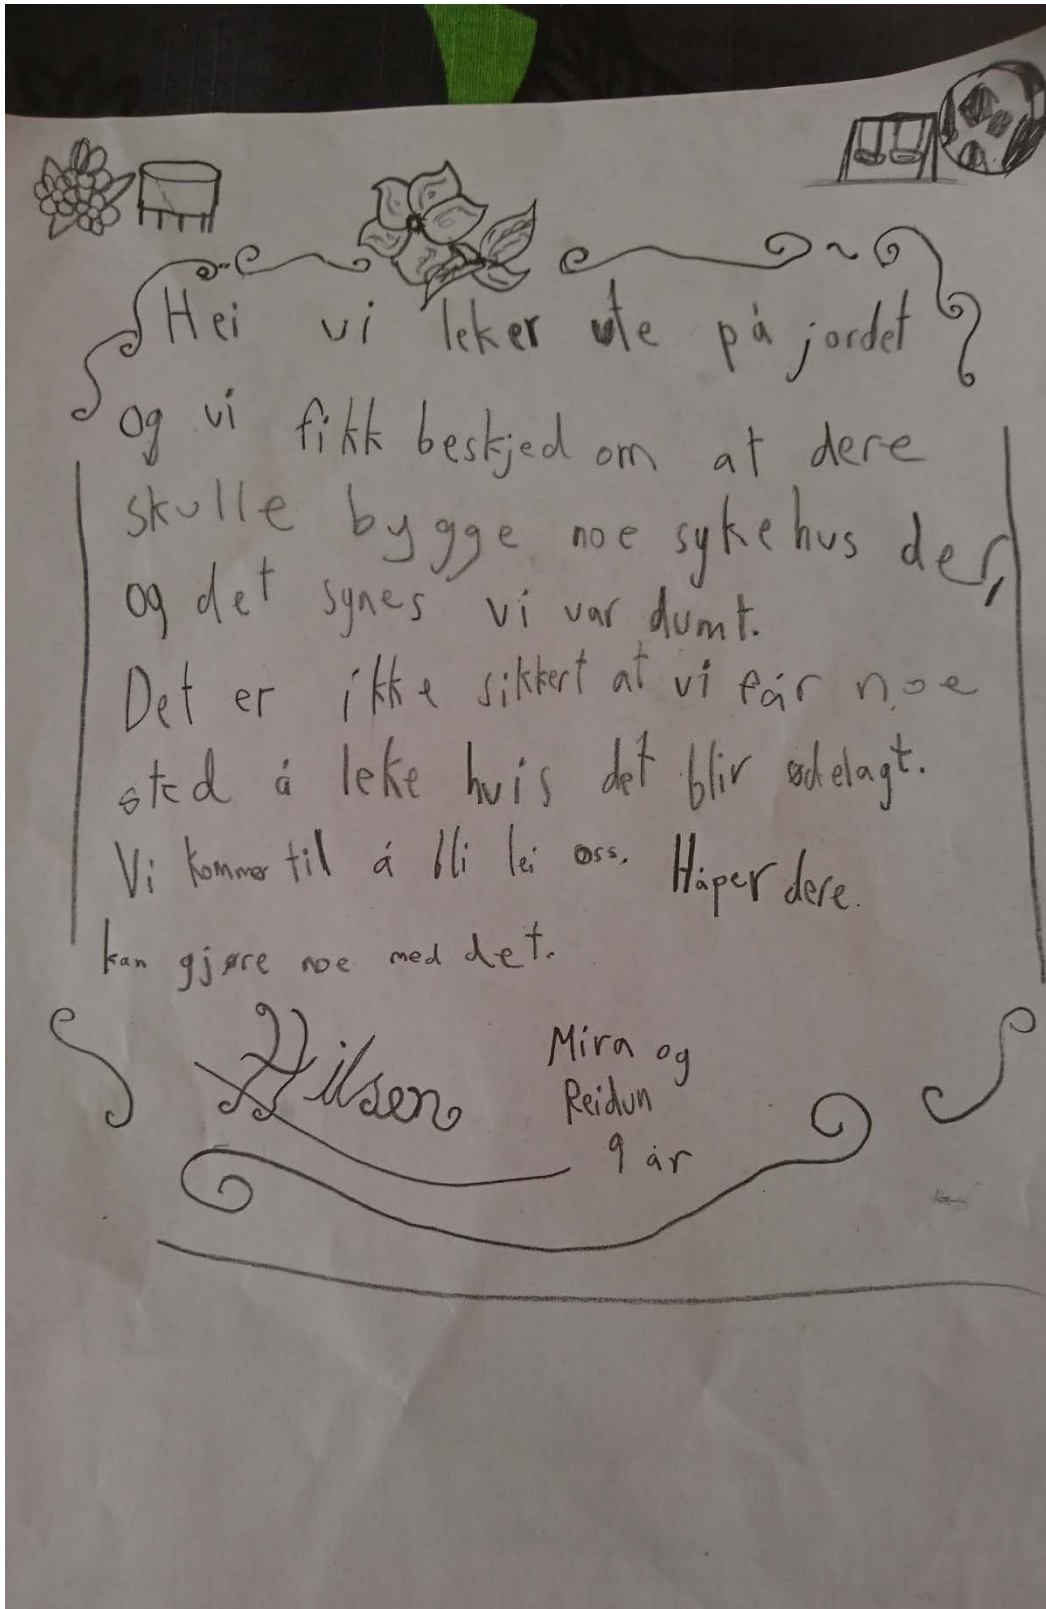 Hei vi leker ute på jordet
og vi fikk beskjed om at dere
skulle bygge noe sykehus der,
og det synes vi var dumt.
Det er ikke sikkert at vi får noe
sted å leke hvis det blir ødelagt.
Vi kommer til å bli lei oss. Håper dere.
kan gjøre noe med det.
Hilsen Mira og
Reidun
9 år